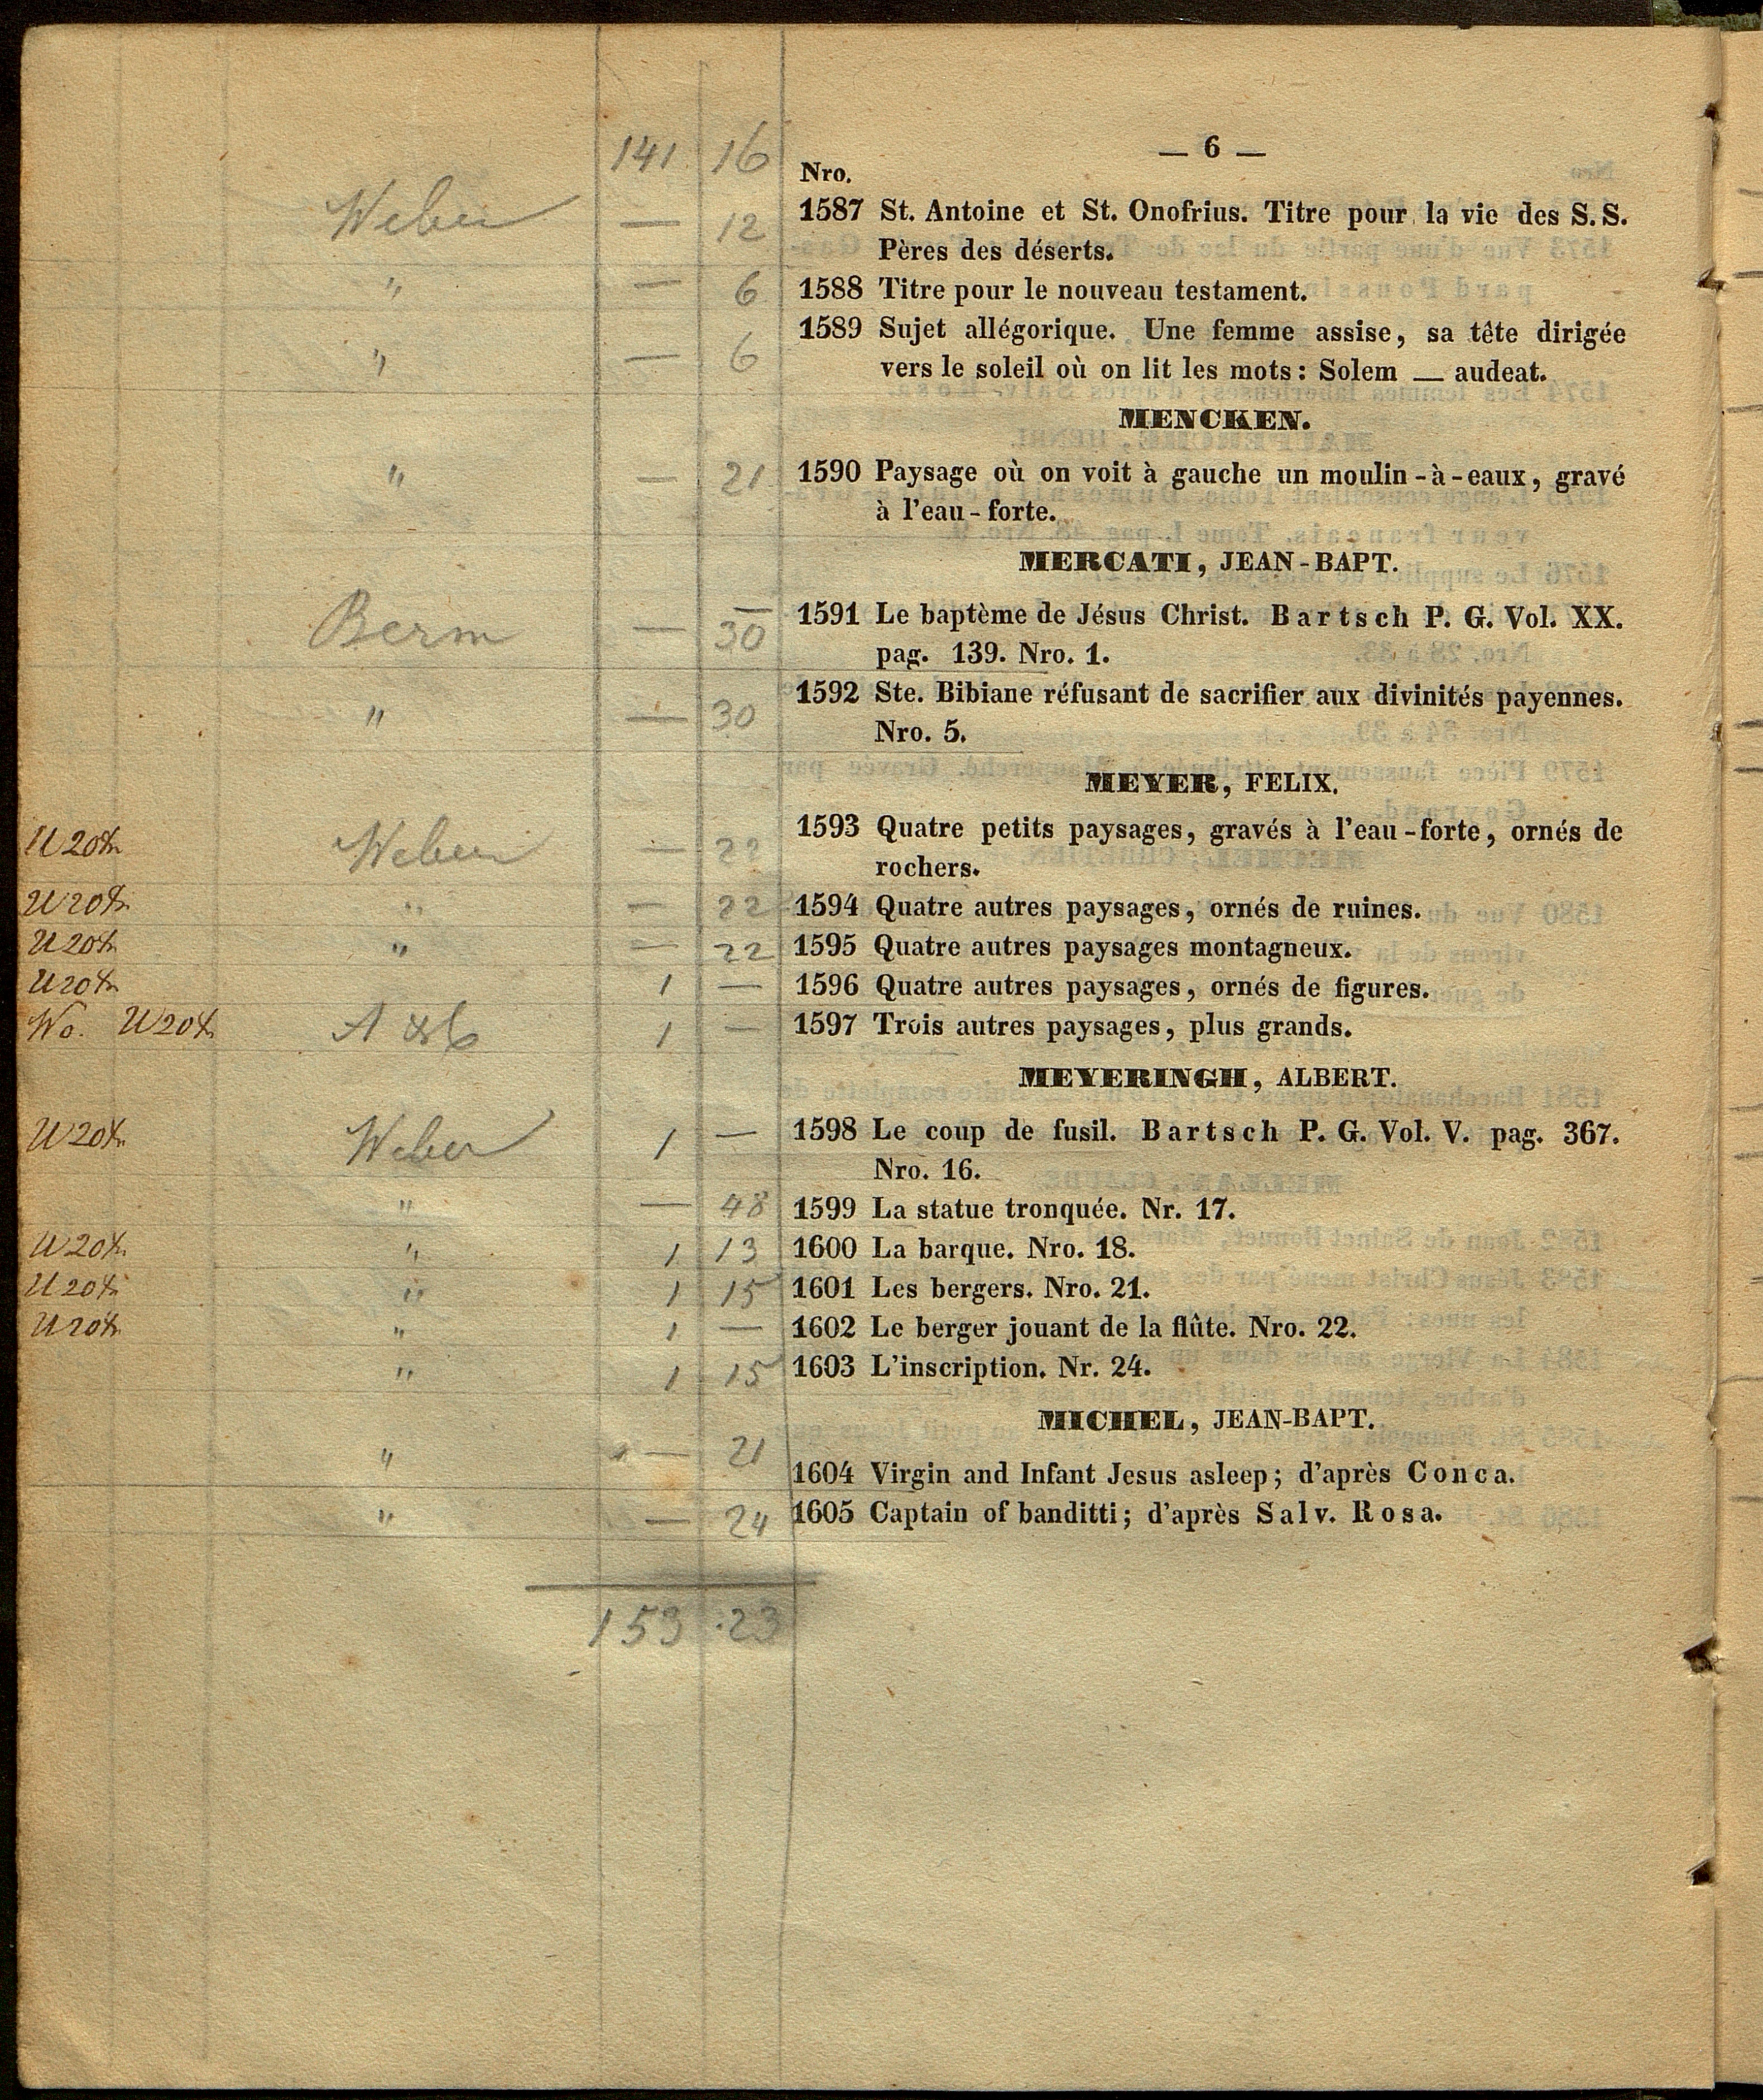 141 16
— 6 —
Nro.
Weber — 12 1587 St. Antoine et St. Onofrius. Titre pour la vie des S. S.
Pères des déserts.
" — 6 1588 Titre pour le nouveau testament.
" — 6 1589 Sujet allégorique. Une femme assise, sa tête dirigée
vers le soleil où on lit les mots: Solem — audeat.
MENCKEN.
" — 21 1590 Paysage où on voit à gauche un moulin-à-eaux, gravé
à l'eau-forte.
MERCATI, JEAN-BAPT.
Berm — 30 1591 Le baptème de Jésus Christ. Bartsch P. G. Vol. XX.
pag. 139. Nro. 1.
" — 30 1592 Ste. Bibiane réfusant de sacrifier aux divinités payennes.
Nro. 5.
MEYER, FELIX.
Weber — 22 1593 Quatre petits paysages, gravés à l'eau-forte, ornés de
rochers.
" — 22 1594 Quatre autres paysages, ornés de ruines.
" — 22 1595 Quatre autres paysages montagneux.
1 — 1596 Quatre autres paysages, ornés de figures.
Wo. 1 — 1597 Trois autres paysages, plus grands.
MEYERINGH, ALBERT.
Weber 1 — 1598 Le coup de fusil. Bartsch P. G. Vol. V. pag. 367.
Nro. 16.
" — 48 1599 La statue tronquée. Nr. 17.
" 1 13 1600 La barque. Nro. 18.
" 1 15 1601 Les bergers. Nro. 21.
" 1 — 1602 Le berger jouant de la flûte. Nro. 22.
" 1 15 1603 L'inscription. Nr. 24.
MICHEL, JEAN-BAPT.
" — 21 1604 Virgin and Infant Jesus asleep; d'après Conca.
" — 24 1605 Captain of banditti; d'après Salv. Rosa.
153 :23